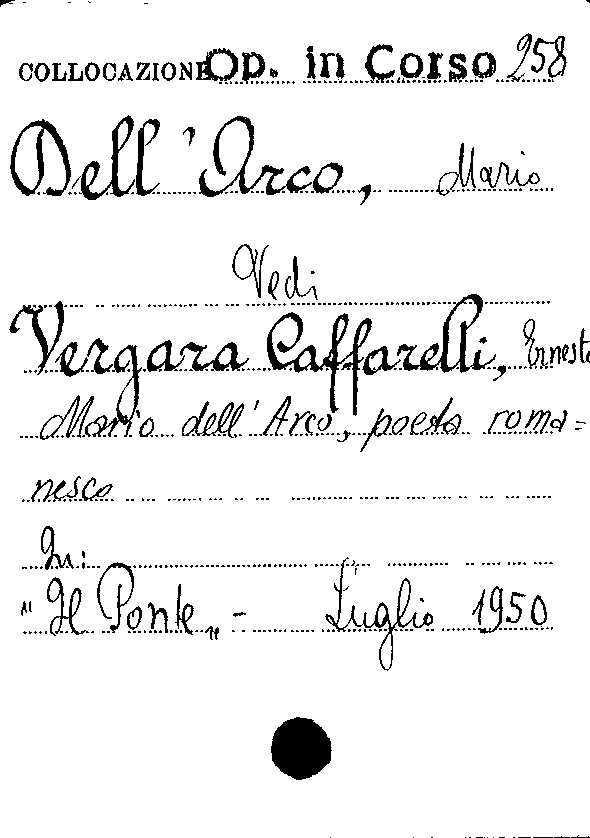 COLLOCAZIONE Op. in Corso 258
Dell'Arco, Mario
Vedi
Vergara Caffarelli, Ernesto
Mario dell'Arco, poeta roma=
nesco
In:
"Il Ponte" - Luglio 1950